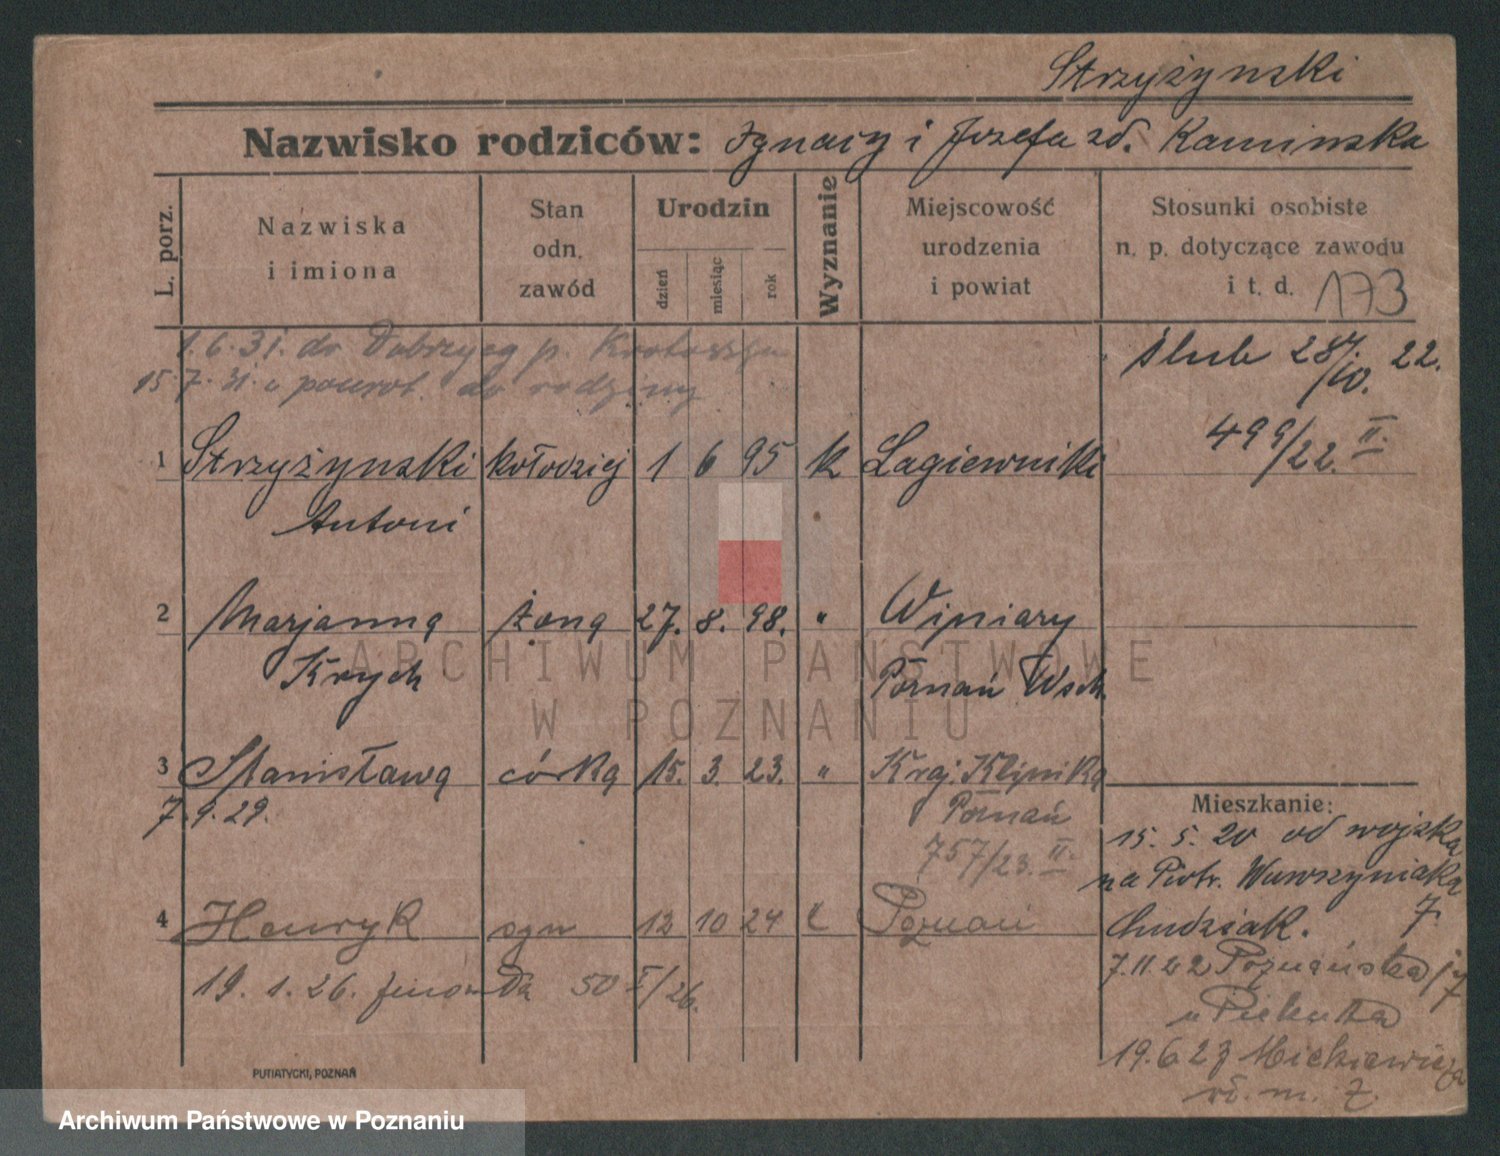 Strzyżynski
Nazwisko rodziców: Ignacy i Jozefa zd. Kaminska
L. porz.
Nazwiska i imiona
Stan odn. zawód
Urodzin
dzień miesiąc rok
Wyznanie
Miejscowość urodzenia i powiat
Stosunki osobiste n. p. dotyczące zawodu i t. d. 173
1.6.31. do Dobrzycy p. Krotoszyn
15.7.31. powrot. do rodziny
ślub 28/10. 22.
499/22. II.
1 Strzyżynski kołodziej 1 6 95 k Łagiewniki
Antoni
2 Marjanna żona 27. 8. 98. " Winiary
Krych Poznań Wsch.
3 Stanisława córka 15. 3. 23. " Kraj. Klinika
7.9.29. Poznań
757/23. II.
4 Henryk syn 12 10 24 k Poznań
19. 1. 26. 50 I/26.
Mieszkanie:
15. 5. 20 od wojska
na Piotr. Wawrzyniaka
7.
Chudziak.
7.11 22 Poznańska
u Piekuta
19.6 23 Mickiewicza
PUTIATYCKI, POZNAŃ
ARCHIWUM PAŃSTWOWE
W POZNANIU
Archiwum Państwowe w Poznaniu